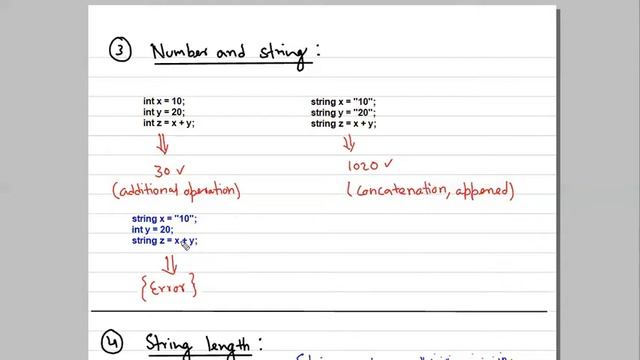 3 Number and string :
int x = 10;
int y = 20;
int z = x + y;
30 ✓
(additional operation)
string x = "10";
string y = "20";
string z = x + y;
1020 ✓
(concatenation, appened)
string x = "10";
int y = 20;
string z = x + y;
{Error}
4 String length :